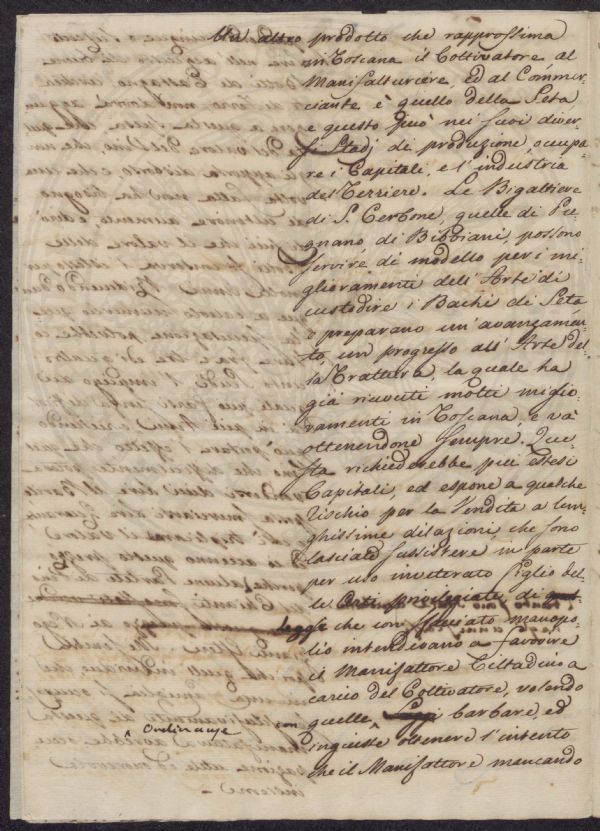 Un altro prodotto che rapprossima
in Toscana il Coltivatore, al
Manifatturiere, ed al Commer-
ciante è quello della Seta
e questo può nei suoi diver-
si Stadj di produzione, occupa-
re i Capitali, e l'industria
del Terriere. Le Bigattiere
di S. Cerbone, quelle di Pu-
gnano, di Bibbiani, possono
servire di modello per i mi-
glioramenti dell'Arte di
custodire i Bachi di Seta,
e preparano un'avanzamen-
to, un progresso all'Arte del-
la Trattura, la quale ha
già ricevuti molti miglio-
ramenti in Toscana, e va
ottenendone sempre. Que-
sta richiederebbe più estesi
Capitali, ed espone a qualche
rischio per la Vendita a lun-
ghissime dilazioni, che sono
lasciate sussistere in parte
per uso inveterato figlio del-
le Arti privilegiate, di
legge che con sfacciato monopo-
lio intendevano a favorire
il Manifattore Cittadino a
carico del Coltivatore, volendo
con quelle Ordinanze barbare, ed
ingiuste ottenere l'intento
che il Manifattore mancando